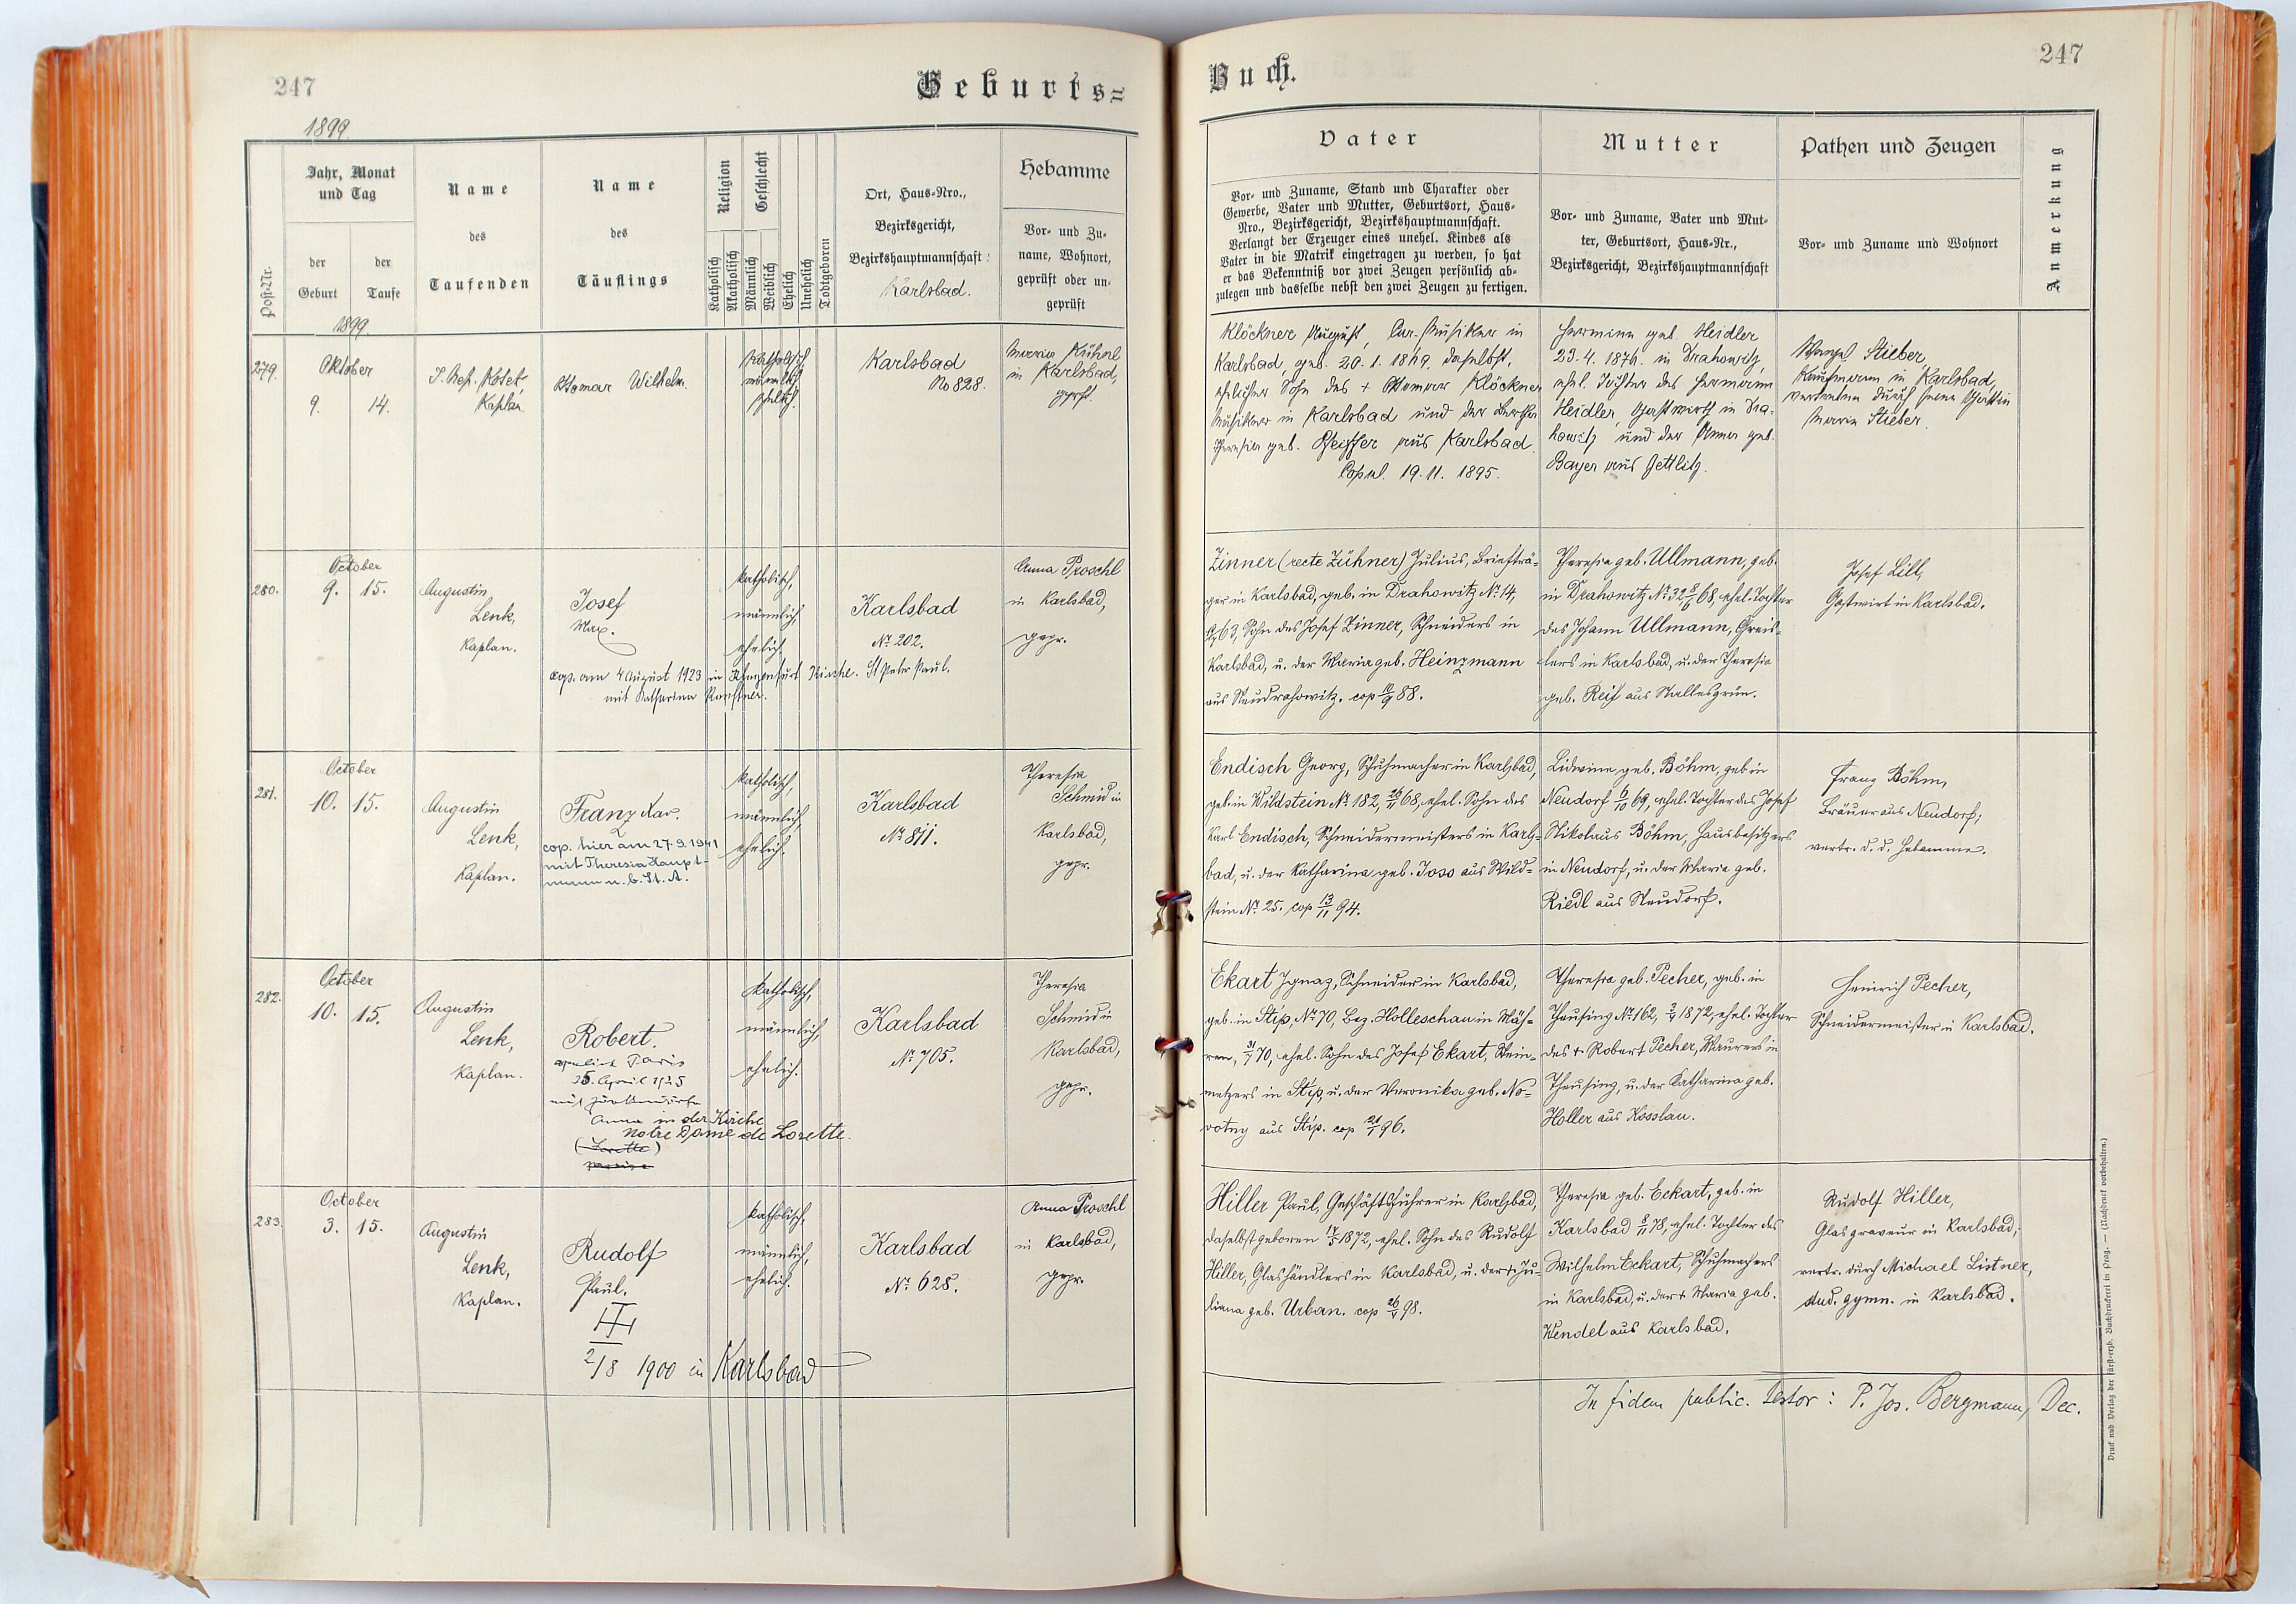 247
Geburts=
1899
Post-Nr.
Jahr, Monat
und Tag
der
Geburt
der
Taufe
Name
des
Taufenden
Name
des
Täuflings
Religion
Geschlecht
Katholisch
Akatholisch
Männlich
Weiblich
Ehelich
Unehelich
Todtgeboren
Ort, Haus-Nro.,
Bezirksgericht,
Bezirkshauptmannschaft:
Karlsbad.
Hebamme
Vor- und Zu-
name, Wohnort,
geprüft oder un-
geprüft
1899
279.
Oktober
9. 14.
Kaplan
Ottomar Wilhelm.
katholisch
männlich
ehelich.
Karlsbad
No 828.
Maria Kühnl
in Karlsbad,
gepr.
280.
October
9. 15.
Augustin
Lenk,
Kaplan.
Josef
Max.
cop. am 4 August 1923 in Klagenfurt Kirche. St Peter Paul.
mit Katharina
katholisch,
männlich,
ehelich,
Karlsbad
No 202.
Anna Proschl
in Karlsbad,
gepr.
281.
October
10. 15.
Augustin
Lenk,
Kaplan.
Franz Xav.
cop. hier am 27.9.1941
mit Theresia Haupt-
mann u. b. St. A.
katholisch,
männlich,
ehelich.
Karlsbad
No 811.
Theresia
Schmid in
Karlsbad,
gepr.
282.
October
10. 15.
Augustin
Lenk,
Kaplan.
Robert.
Paris
25. April 1925
mit
Anna in der Kirche
Notre Dame de Lorette.
(Lorette)
katholisch,
männlich,
ehelich.
Karlsbad
No 705.
Theresia
Schmid in
Karlsbad,
gepr.
283.
October
3. 15.
Augustin
Lenk,
Kaplan.
Rudolf
Paul.
2/8 1900 in Karlsbad
katholisch,
männlich,
ehelich.
Karlsbad
No 628.
Anna Proschl
in Karlsbad,
gepr.
Buch.
247
Vater
Vor- und Zuname, Stand und Charakter oder
Gewerbe, Vater und Mutter, Geburtsort, Haus-
Nro., Bezirksgericht, Bezirkshauptmannschaft.
Verlangt der Erzeuger eines unehel. Kindes als
Vater in die Matrik eingetragen zu werden, so hat
er das Bekenntniß vor zwei Zeugen persönlich ab-
zulegen und dasselbe nebst den zwei Zeugen zu fertigen.
Mutter
Vor- und Zuname, Vater und Mut-
ter, Geburtsort, Haus-Nr.,
Bezirksgericht, Bezirkshauptmannschaft
Pathen und Zeugen
Vor- und Zuname und Wohnort
Anmerkung
Klöckner August, Cur-Musiker in
Karlsbad, geb. 20.1.1869. daselbst,
ehelicher Sohn des + Ottomar Klöckner
Musiker in Karlsbad und der Bertha
Theresia geb. Pfeiffer aus Karlsbad.
Copul. 19.11.1895.
Hermine geb. Heidler
23.4.1876. in Drahowitz,
ehel. Tochter des Hermann
Heidler, Gastwirth in Dra-
howitz und der Anna geb.
Bayer aus Zettlitz.
Wenzel Stieber,
Kaufmann in Karlsbad,
vertreten durch seine Gattin
Maria Stieber.
Zinner (recte Zühner) Julius, Briefträ-
ger in Karlsbad, geb. in Drahowitz No 14,
63, Sohn des Josef Zinner, Schneiders in
Karlsbad, u. der Maria geb. Heinzmann
aus Neudrahowitz. cop 10/9 88.
Theresia geb. Ullmann, geb.
in Drahowitz No 32 8/6 68, ehel. Tochter
des Johann Ullmann, Greis-
lers in Karlsbad, u. der Theresia
geb. Reif aus Stallesgrün.
Josef Lill,
Gastwirt in Karlsbad.
Endisch Georg, Schuhmacher in Karlsbad,
geb. in Wildstein No 182, 68, ehel. Sohn des
Karl Endisch, Schneidermeisters in Karls-
bad, u. der Katharina geb. Joss aus Wild=
stein No 25. cop 13/11 94.
Lidwina geb. Böhm, geb in
Neudorf 6/10 69, ehel. Tochter des Josef
Nikolaus Böhm, Hausbesitzers
in Neudorf, u. der Maria geb.
Riedl aus Neudorf.
Franz Böhm,
Bräuer aus Neudorf;
vertr. d. d. Hebamme.
Ekart Ignaz, Schneider in Karlsbad,
geb. in Stip, No 70, Bez. Holleschau in Mäh-
ren, 31/7 70, ehel. Sohn des Josef Ekart, Stein-
metzers in Stip, u. der Veronika geb. No-
votny aus Stip. cop 21/1 96.
Theresia geb. Pecher, geb. in
Theusing No 162, 1872, ehel. Tochter
des + Robert Pecher, Maurers in
Theusing, u. der Katharina geb.
Holler aus Kosslau.
Heinrich Pecher,
Schneidermeister in Karlsbad.
Hiller Paul, Geschäftsführer in Karlsbad,
daselbst geboren 17/5 1872, ehel. Sohn des Rudolf
Hiller, Glashändlers in Karlsbad, u. der + Ju-
liana geb. Urban. cop 98.
Theresia geb. Eckart, geb. in
Karlsbad 8/11 78, ehel. Tochter des
Wilhelm Eckart, Schuhmachers
in Karlsbad, u. der + Maria geb.
Wendel aus Karlsbad.
Rudolf Hiller,
Glasgraveur in Karlsbad;
vertr. durch Michael Listner,
stud. gymn. in Karlsbad.
In fidem public. testor: P. Jos. Bergmann, Dec.
Druck und Verlag der fürst-erzb. Buchdruckerei in Prag. — (Nachdruck vorbehalten.)